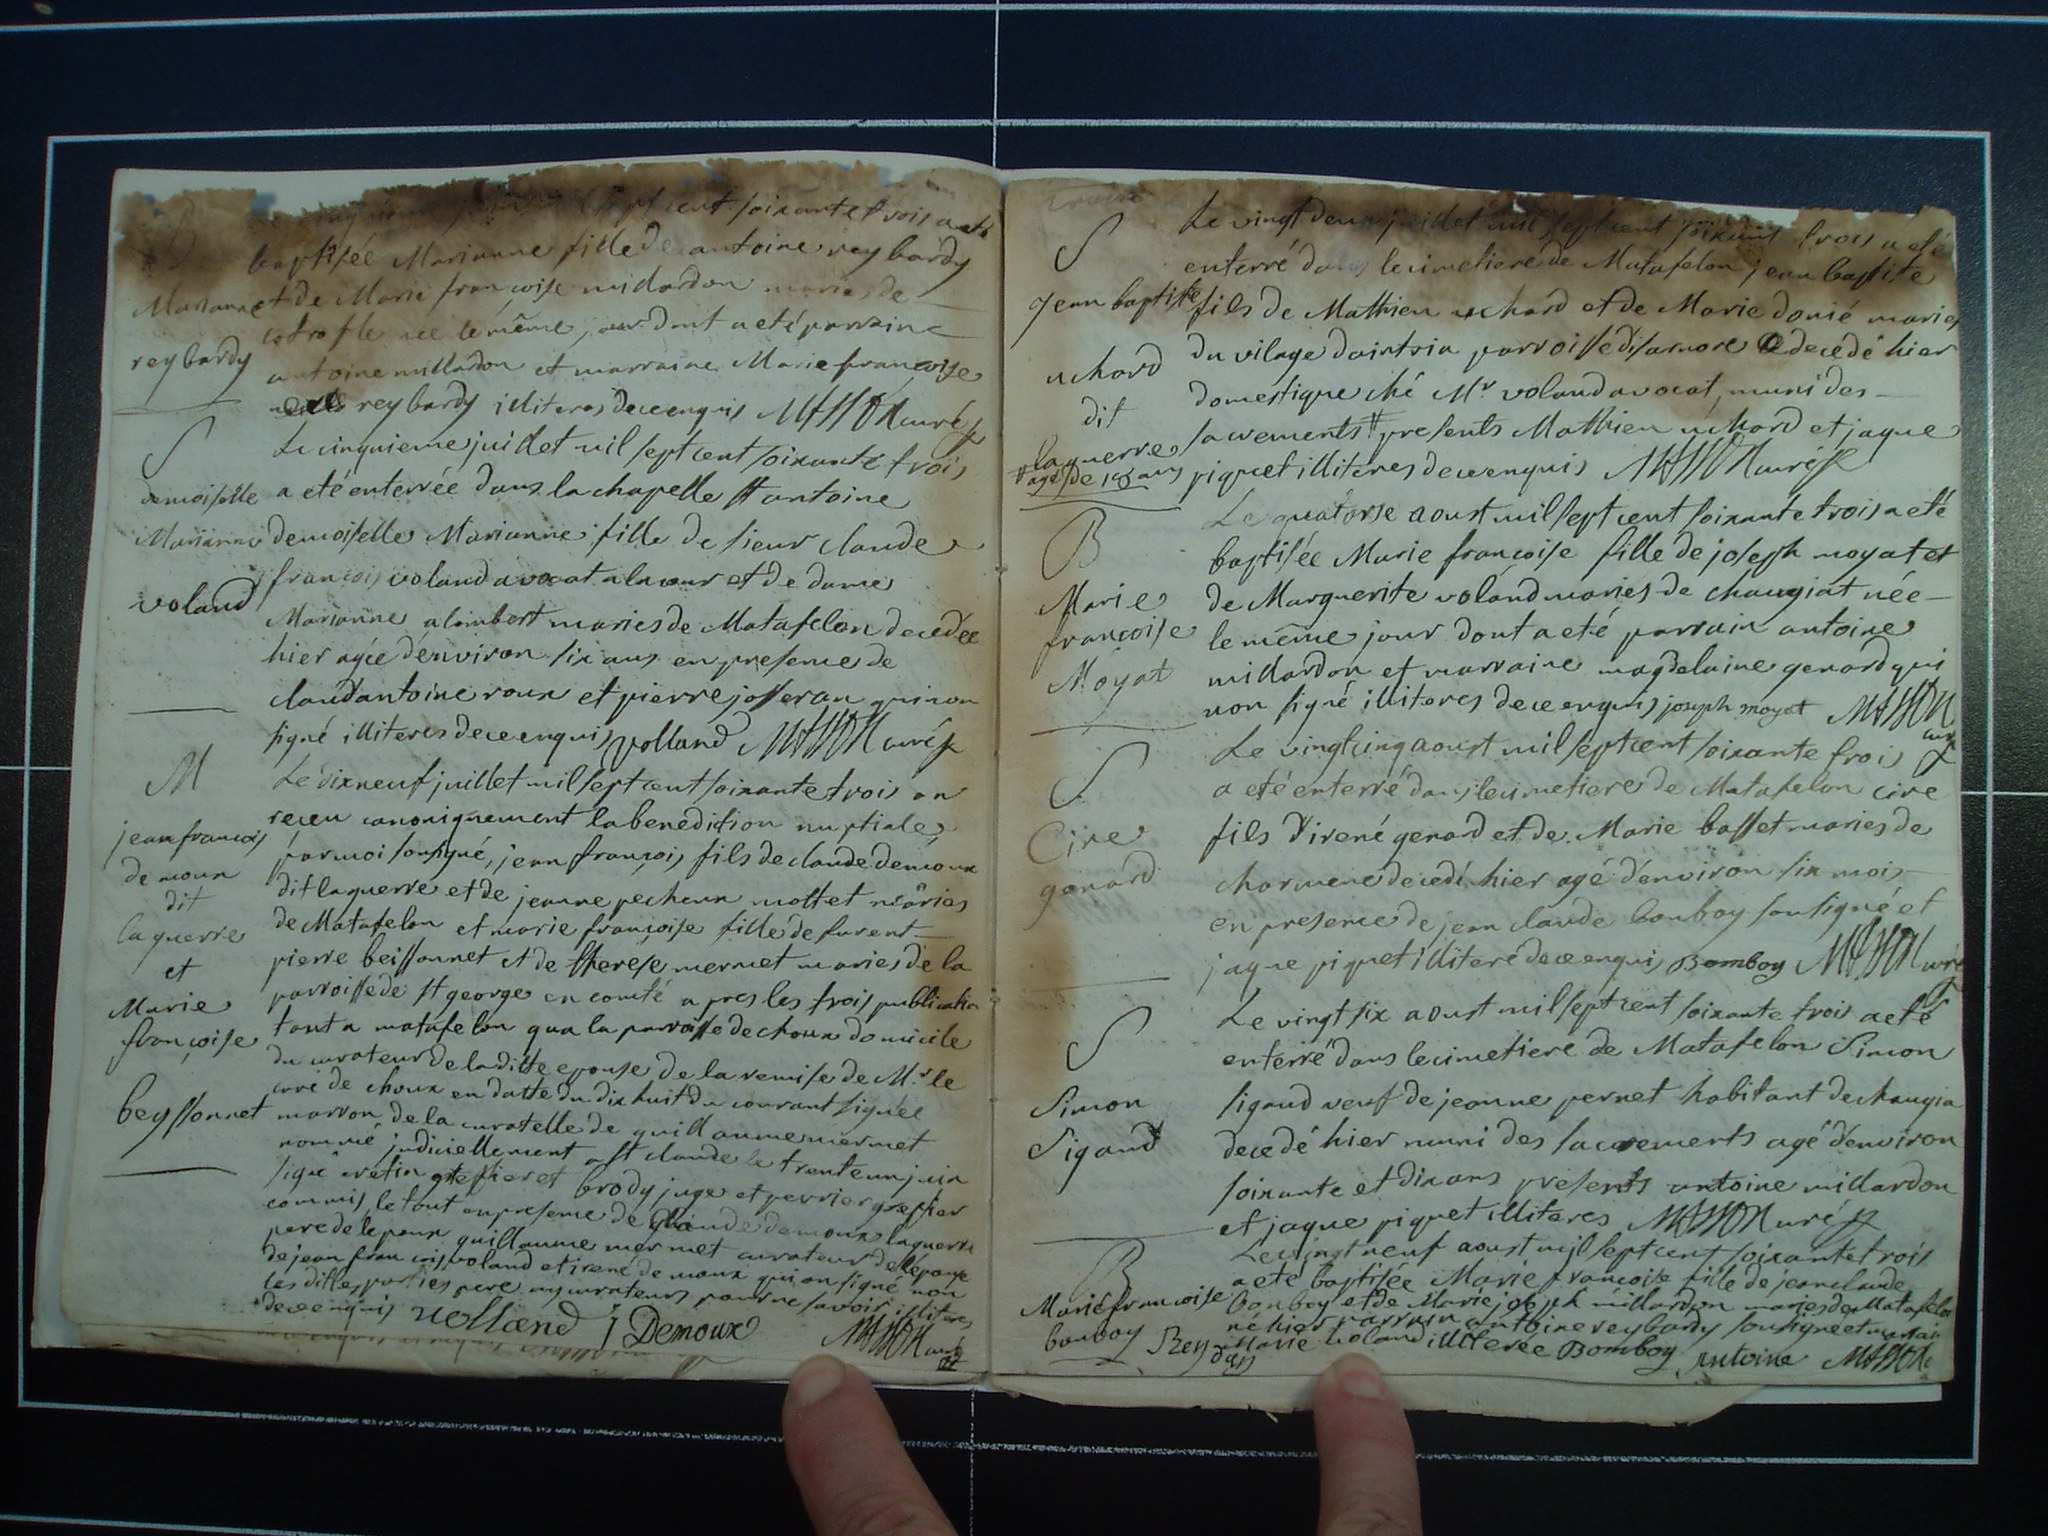 B
sept cent soixante trois a eté
baptisée Marianne fille de antoine reybardy
Marianne
et de Marie francoise millardon maries de
le même jour dont a eté parrain
reybardy
antoine millardon et marraine Marie francoise
reybardy illiteres de ce enquis MASSON curé
S
Le cinquieme juillet mil sept cent soixante trois
demoiselle
a eté enterrée dans la chapelle st antoine
Marianne
demoiselle Marianne fille de sieur claude
voland
françois voland avocat a la cour et de dame
Marianne alombert maries de Matafelon decedée
hier agée d'environ six ans en presence de
claud antoine roux et pierre josseran qui non
signé illiteres de ce enquis Volland MASSON curé
M
Le dix neuf juillet mil sept cent soixante trois on
receu canoniquement la benediction nuptiale
jean françois
par moi sousigné, jean françois fils de claude demoux
de moux
dit laguerre et de jeanne pecheux mottet maries
dit
de Matafelon et marie françoise fille de furent
la guerre
pierre beissonnet et de therese mermet maries de la
et
parroisse de st george en comté apres les trois publication
Marie
tant a matafelon qua la parroisse de choux domicile
françoise
du curateur de laditte epouse de la remise de Mr le
curé de choux en datte du dix huit du courant signée
beyssonnet
marron de la curatelle de guillaume mermet
nommé judiciellement a st claude le trente un juin
signé cretin greffier et brody juge et perrier greffier
commis le tout en presence de claude demoux laguerre
pere de lepoux guillaume mermet curateur de lepouse
de jean francois voland et irené de moux qui on signé non
les dittes parties pere ny curateurs pour ne savoir illiteres
de ce enquis volland J Demoux MASSON curé
S
Le vingt deux juillet mil sept cent soixante trois a eté
enterré dans le cimetiere de Matafelon jean baptiste
Jean baptiste
fils de Mathieu uchard et de Marie donié maries
uchard
du vilage daintsia parroisse disarnore decedé hier
dit
domestique ché Mr voland avocat, muni des
laguerre
sacrements # presents Mathieu uchard et jaque
# agé de 18 ans
piquet illiteres de ce enquis MASSON curé
B
Le quatorse aoust mil sept cent soixante trois a eté
baptisée Marie françoise fille de joseph moyat et
Marie
de Marguerite voland maries de chaugiat née
françoise
le même jour dont a eté parrain antoine
Moyat
millardon et marraine magdelaine genard qui
non signé illiteres de ce enquis joseph moyat MASSON
curé
S
Le vingt cinq aoust mil sept cent soixante trois
a eté enterré dans le cimetiere de Matafelon cire
Cire
fils d'irené genard et de Marie basset maries de
genard
charmene decedé hier agé d'environ six mois
en presence de jean claude bonboy sousigné et
jaque piquet illiteré de ce enquis Bomboy MASSON curé
S
Le vingt six aoust mil sept cent soixante trois a eté
enterré dans le cimetiere de Matafelon Simon
Simon
sigaud veuf de jeanne pernet habitant de chaugia
Sigaud
decedé hier muni des sacrements agé d'environ
soixante et dix ans presents antoine millardon
et jaque piquet illiteres MASSON curé
B
Le vingt neuf aoust mil sept cent soixante et trois
a eté baptisée Marie françoise fille de jean claude
Marie francoise
bonboy et de Marie joseph millardon maries de Matafelon
bonboy
né hier parrain antoine reybardy sousigné et marrai
Marie voland illiterée Bomboy antoine MASSON